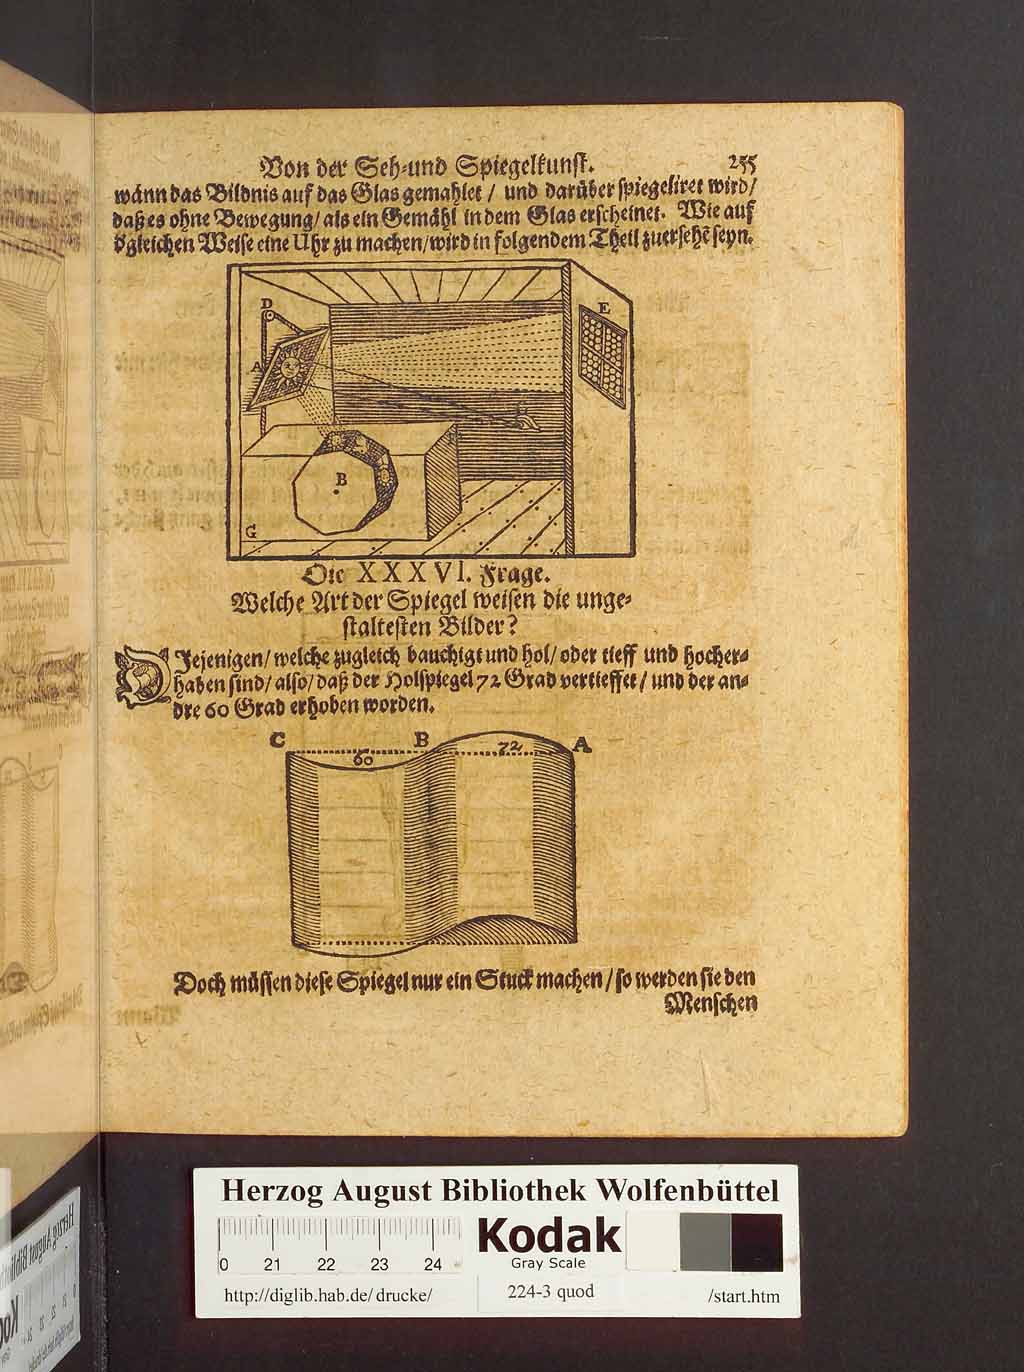 Von der Seh-und Spiegelkunst. 255
wann das Bildnis auf das Glas gemahlet / und darüber spiegeliret wird/
daß es ohne Bewegung/ als ein Gemähl in dem Glas erscheinet. Wie auf
dgleichen Weise eine Uhr zu machen/ wird in folgendem Theil zuersehē seyn.
D
E
A
B
G
Die XXXVI. Frage.
Welche Art der Spiegel weisen die unge-
staltesten Bilder?
DJejenigen/ welche zugleich bauchigt und hol/ oder tieff und hocher-
haben sind/ also/ daß der Holspiegel 72 Grad vertieffet/ und der an-
dre 60 Grad erhoben worden.
C B A
60 72
Doch müssen diese Spiegel nur ein Stuck machen / so werden sie den
Menschen
Herzog August Bibliothek Wolfenbüttel
0 21 22 23 24
Kodak
Gray Scale
http://diglib.hab.de/ drucke/ 224-3 quod /start.htm